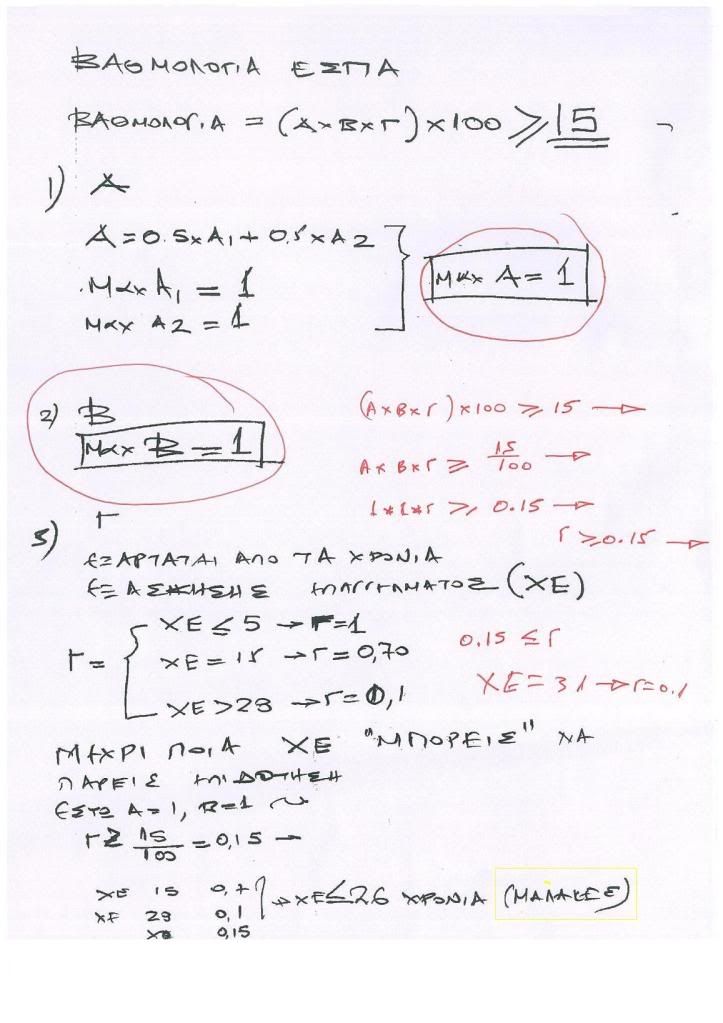 ΒΑΘΜΟΛΟΓΙΑ ΕΣΠΑ
ΒΑΘΜΟΛΟΓΙΑ = (Α×Β×Γ)×100 ≥ 15
1) Α
Α = 0.5×Α1 + 0.5×Α2
Μαx Α1 = 1
Μαx Α2 = 1
Μαx Α = 1
2) Β
Μαx Β = 1
(Α×Β×Γ)×100 ≥ 15 →
Α×Β×Γ ≥ 15/100 →
1*1*Γ ≥ 0.15 →
Γ ≥ 0.15 →
3) Γ
ΕΞΑΡΤΑΤΑΙ ΑΠΟ ΤΑ ΧΡΟΝΙΑ
ΕΞΑΣΚΗΣΗΣ ΕΠΑΓΓΕΛΜΑΤΟΣ (ΧΕ)
Γ = { ΧΕ ≤ 5 → Γ=1
ΧΕ = 15 → Γ = 0,70
ΧΕ > 29 → Γ = 0,1
0.15 ≤ Γ
ΧΕ = 31 → Γ=0.1
ΜΕΧΡΙ ΠΟΙΑ ΧΕ "ΜΠΟΡΕΙΣ" ΝΑ
ΠΑΡΕΙΣ ΕΠΙΔΟΤΗΣΗ
ΕΣΤΩ Α=1, Β=1
Γ ≥ 15/100 = 0,15 →
ΧΕ 15 0,7
ΧΕ 29 0,1
ΧΕ 0,15
→ ΧΕ ≤ 26 ΧΡΟΝΙΑ (ΜΑΛΑΚΕΣ)